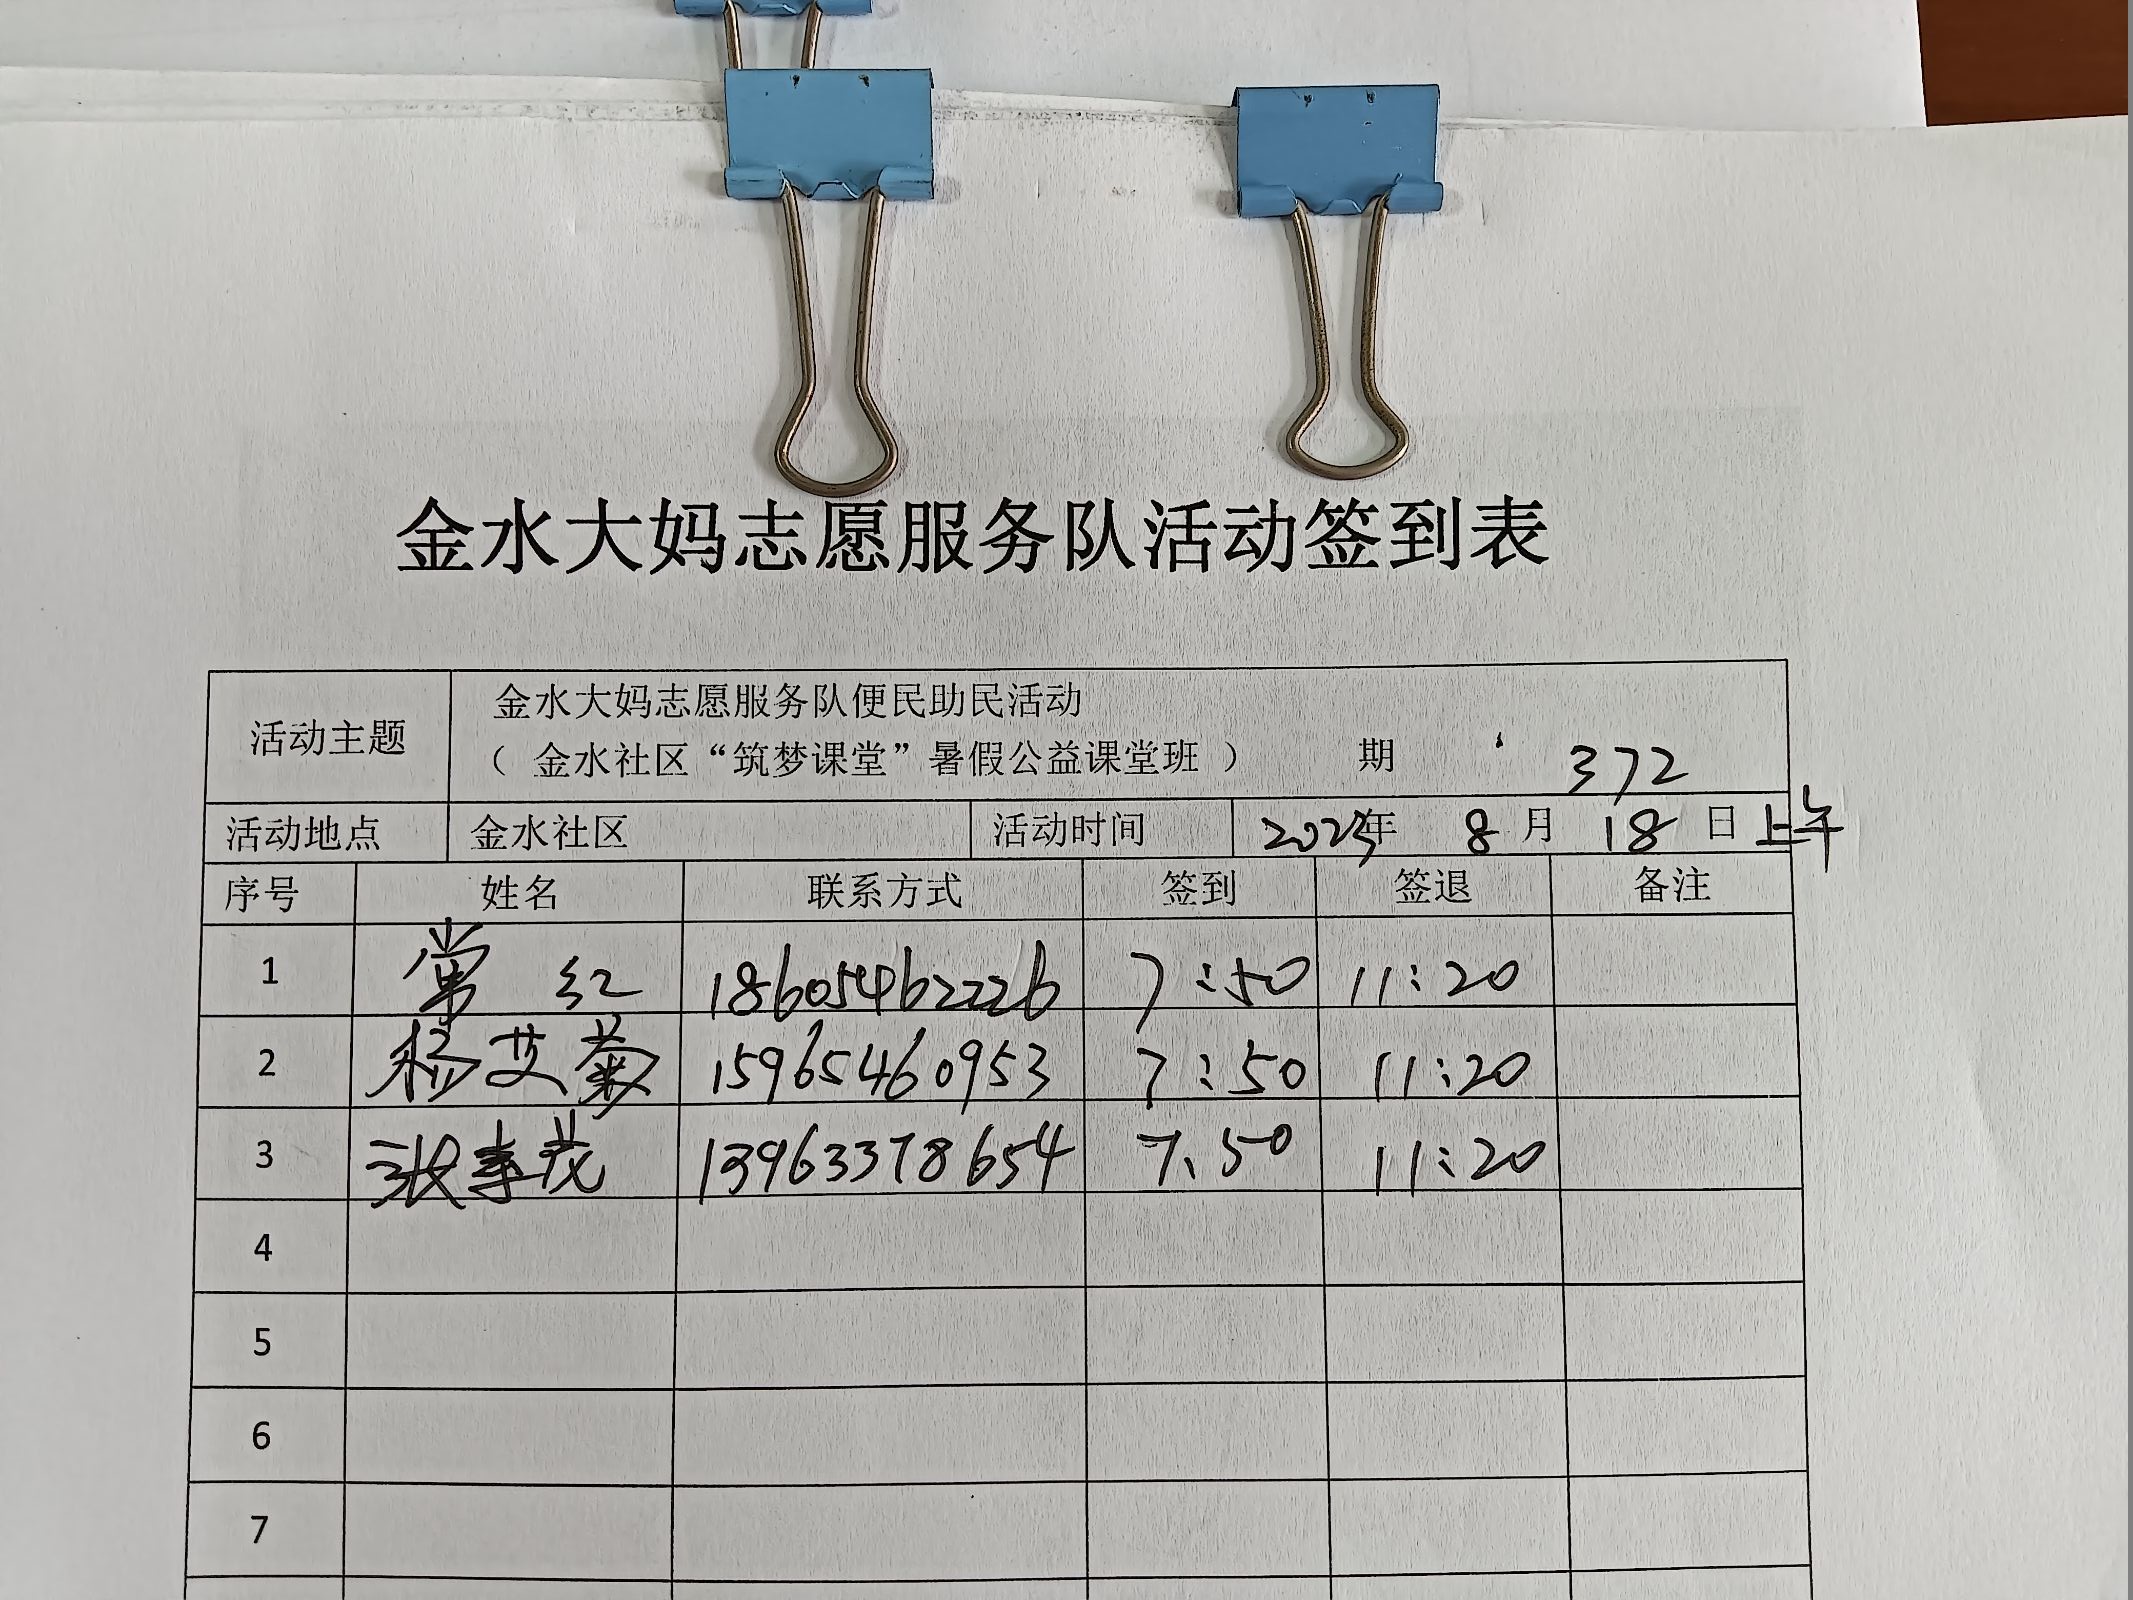 金水大妈志愿服务队活动签到表
活动主题 金水大妈志愿服务队便民助民活动
（ 金水社区“筑梦课堂”暑假公益课堂班 ） 期 372
活动地点 金水社区 活动时间 2023年 8 月 18 日 上午
序号 姓名 联系方式 签到 签退 备注
1 常红 18605462226 7:50 11:20
2 杨艾菊 15965460953 7:50 11:20
3 张 茂 13963378654 7.50 11:20
4
5
6
7